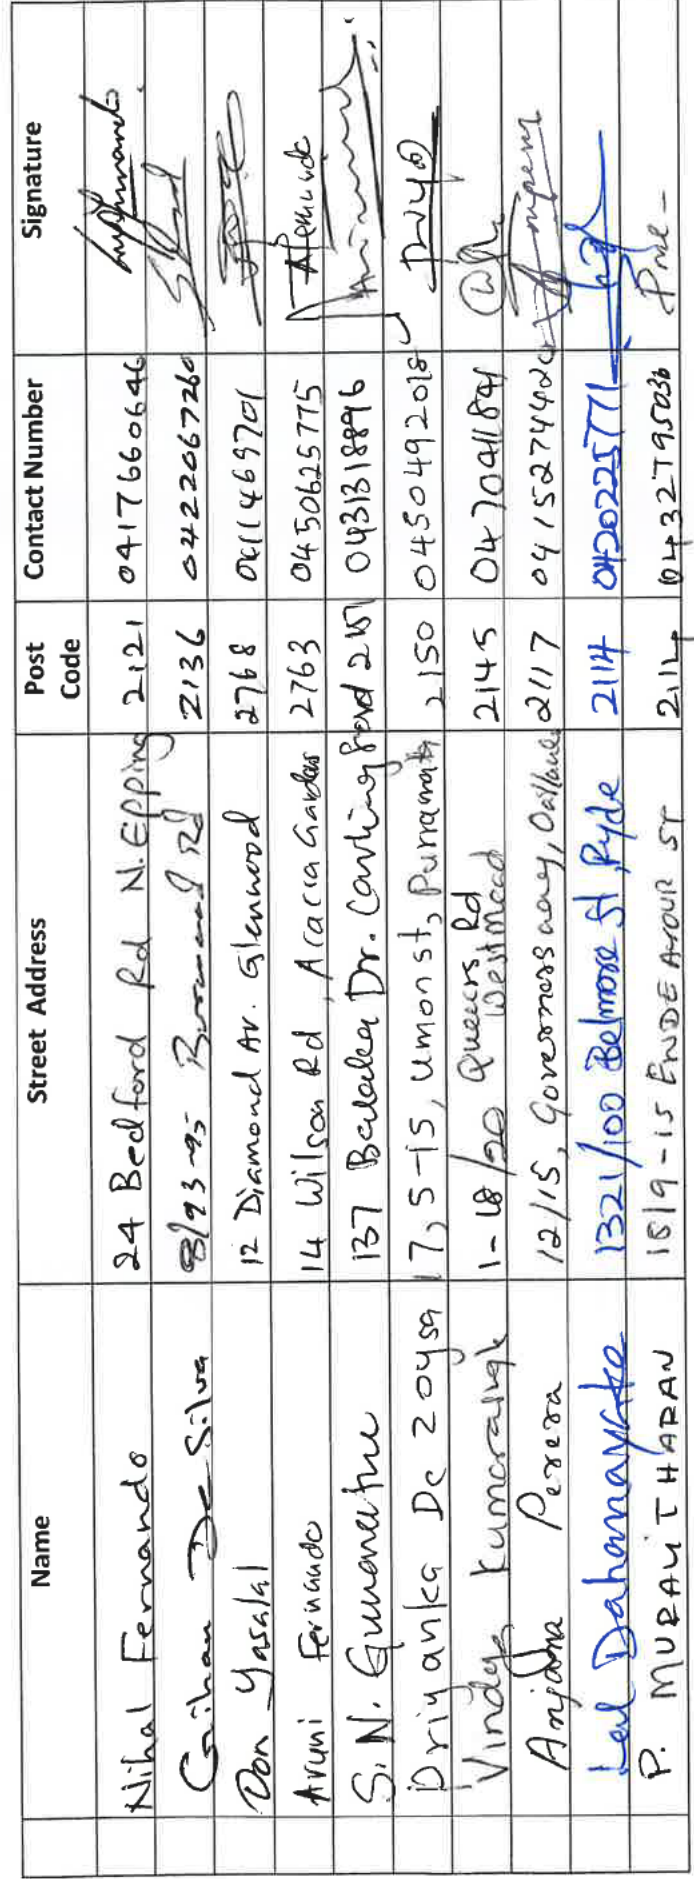 Name Street Address Post Code Contact Number Signature
Nihal Fernando 24 Bedford Rd N. Epping 2121 0417660646
Gihan De Silva 8/93-95 Rd 2136 0422206726
Don Yasalal 12 Diamond Av. Glenwood 2768 0411469701
Aruni Fernando 14 Wilson Rd, Acacia Gardens 2763 0450625775
S. N. Gunaratne 137 Dr. Carlingford 2151 0431318896
Priyanka De Zoysa 17, 5-15, Union st, Parramatta 2150 0450492018 Priya
Vindya Kumarasingh 1-18/20 Queens Rd Westmead 2145 0470411841
Anjana Perera 12/15, Governors way, Oatlands 2117 0415274420
Lal Dahanayake 1321/100 Belmore St, Ryde 2114 0420225771
P. MURALITHARAN 1819-15 ENDEAVOUR ST 2114 0432795036